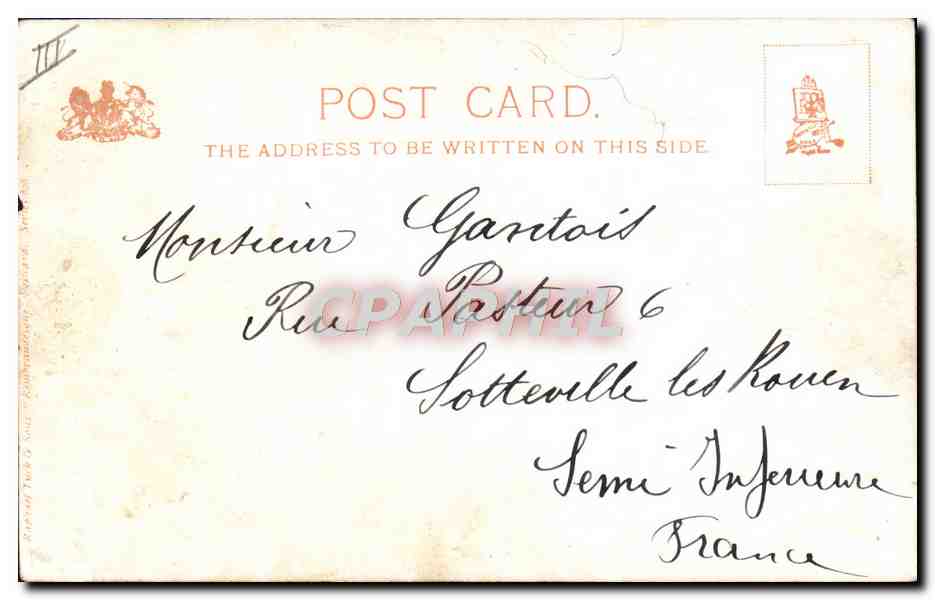 III
POST CARD.
THE ADDRESS TO BE WRITTEN ON THIS SIDE.
Monsieur Gantois
Rue Pasteur 6
CPAPHIL
Sotteville les Rouen
Semi Inferieure
France
Raphael Tuck & Sons'